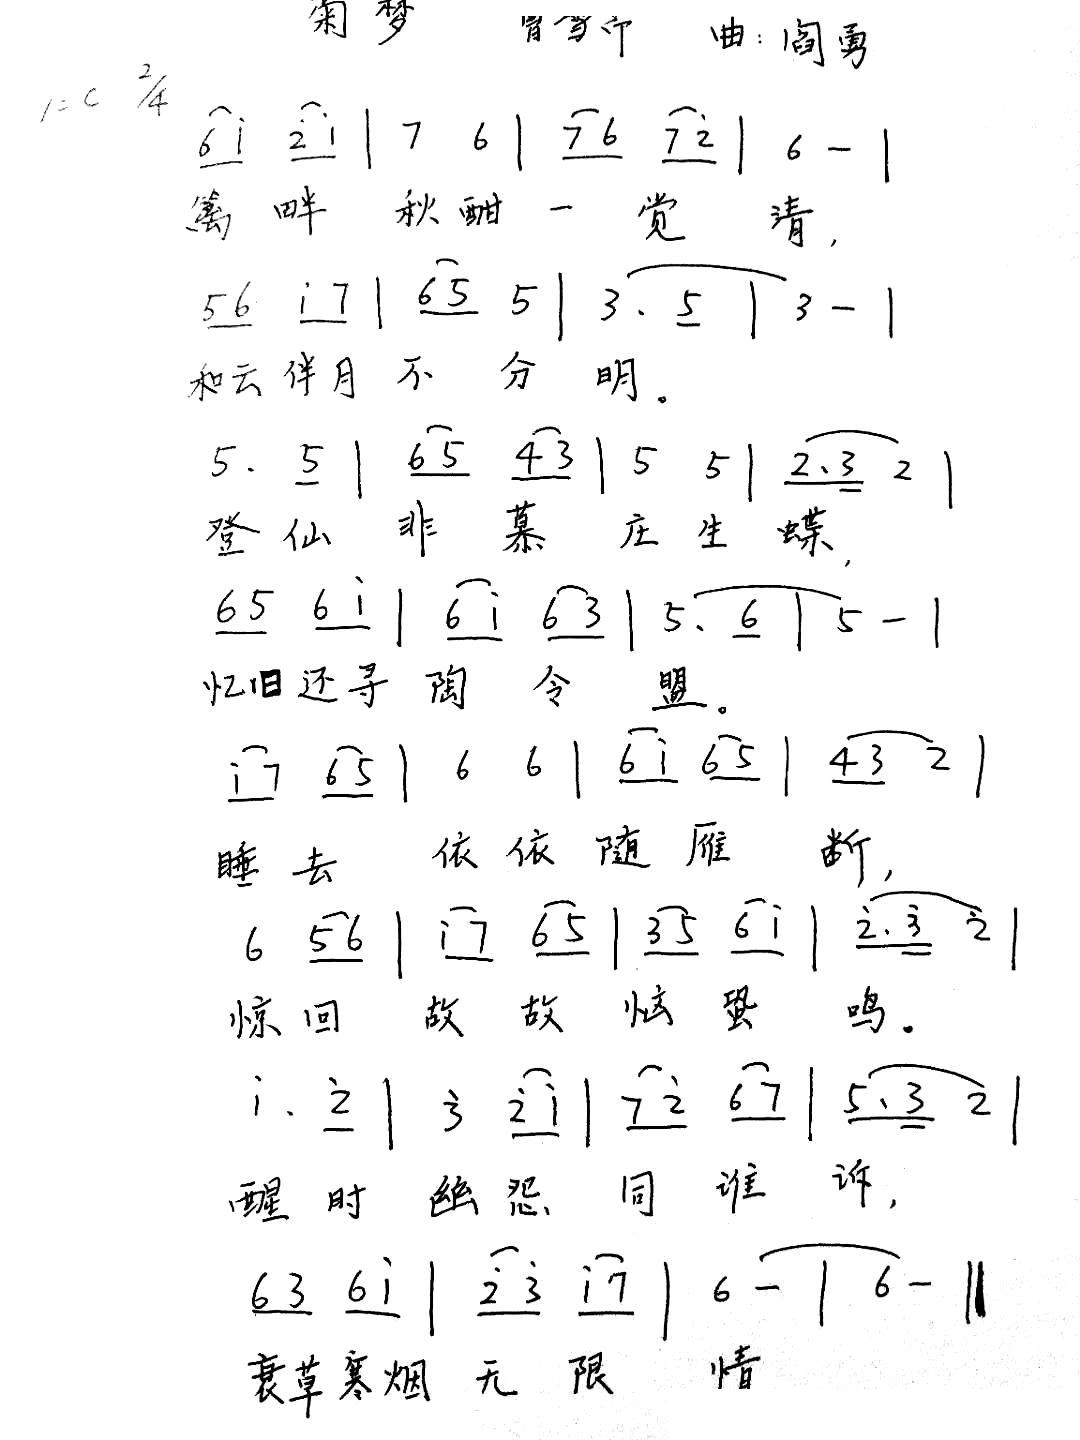 菊梦 曹雪芹 曲：阎勇
1=C 2/4
6 i 2̇ i | 7 6 | 7 6 7 2̇ | 6 — |
篱畔秋酣一觉清，
5 6 i 7 | 6 5 5 | 3 . 5 | 3 — |
和云伴月不分明。
5 . 5 | 6 5 4 3 | 5 5 | 2 . 3 2 |
登仙非慕庄生蝶，
6 5 6 i | 6 i 6 3 | 5 . 6 | 5 — |
忆旧还寻陶令盟。
i 7 6 5 | 6 6 | 6 i 6 5 | 4 3 2 |
睡去依依随雁断，
6 5 6 | i 7 6 5 | 3 5 6 i | 2̇ . 3̇ 2̇ |
惊回故故恼蛩鸣。
i . 2̇ | 3̇ 2̇ i | 7 2̇ 6 7 | 5 . 3 2 |
醒时幽怨同谁诉，
6 3 6 i | 2̇ 3̇ i 7 | 6 — | 6 — ‖
衰草寒烟无限情